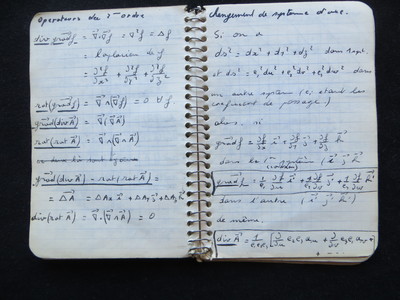 Operateurs du 2ᵉ ordre
div grad f = ∇·∇f = ∇²f = Δf
= laplacien de f
= ∂²f/∂x² + ∂²f/∂y² + ∂²f/∂z²
rot(grad f) = ∇∧(∇f) = 0 ∀f
grad(div A) = ∇(∇·A)
rot(rot A) = ∇∧(∇∧A)
grad(div A) - rot(rot A) =
= ΔA = ΔAx i + ΔAy j + ΔAz k
div(rot A) = ∇·(∇∧A) = 0
changement de systeme d'axe.
Si on a
ds² = dx² + dy² + dz² dans
et ds² = e₁² du² + e₂² dv² + e₃² dw² dans
un autre système (ei etant les
coefficient de passage.)
alors si
grad f = ∂f/∂x i + ∂f/∂y j + ∂f/∂z k
dans le système (i j k)
grad f = 1/e₁ ∂f/∂u i' + 1/e₂ ∂f/∂v j' + 1/e₃ ∂f/∂w k'
dans l'autre (i' j' k')
de même.
div A = 1/e₁e₂e₃ [∂/∂u e₂e₃ + ∂/∂v e₃e₁ +
+ ...